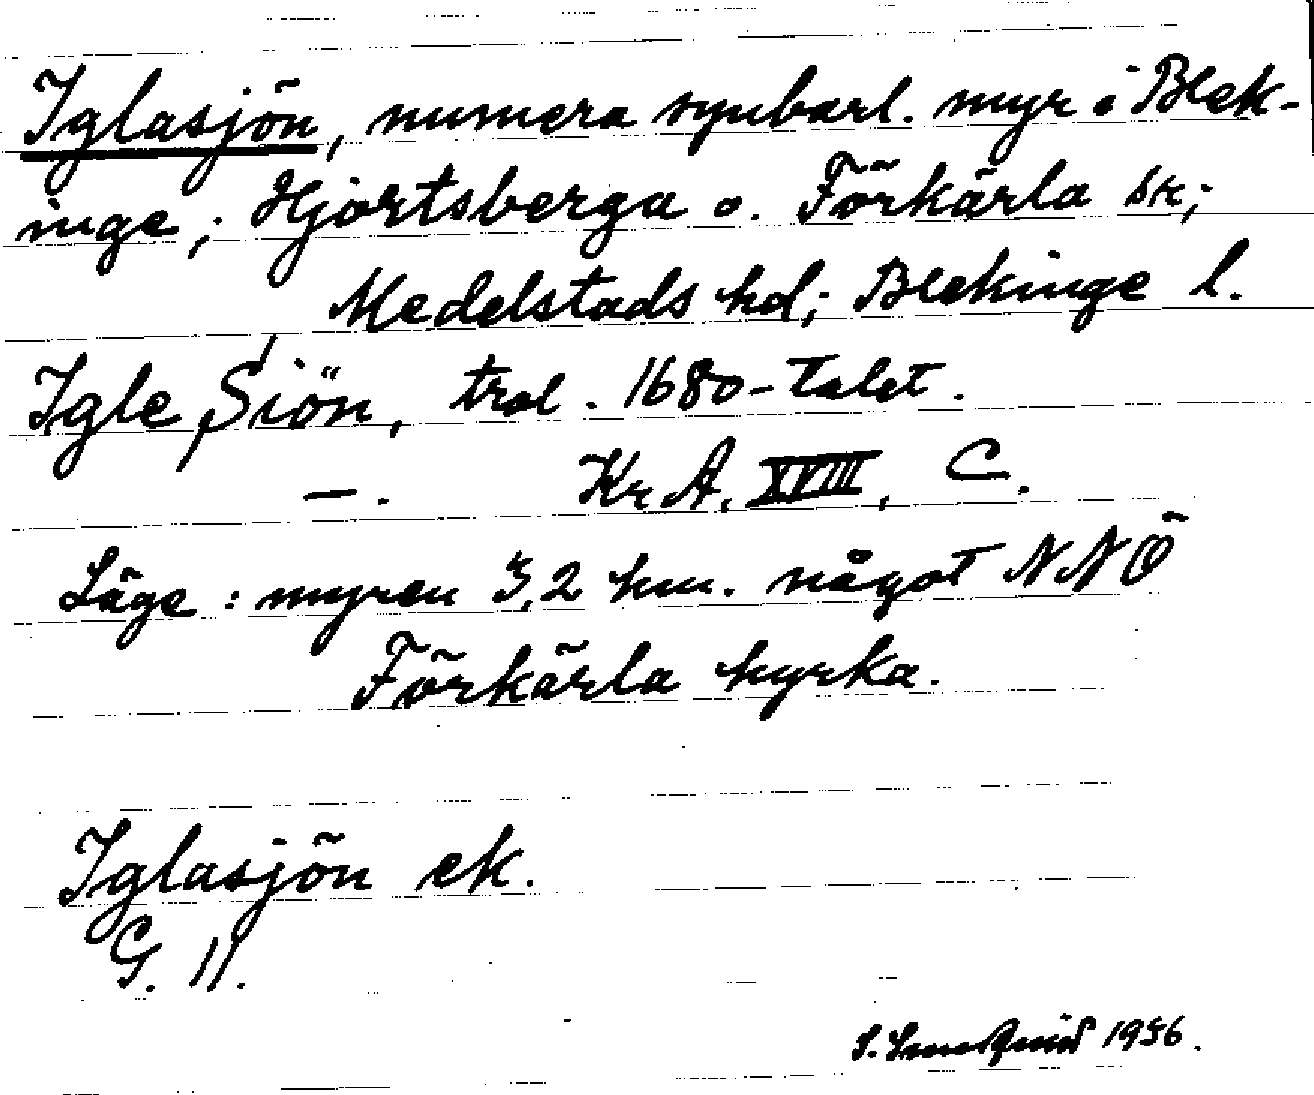 Iglasjön, numera synbarl. myr i Blek-
inge; Hjortsberga o. Förkärla sk;
Medelstads hd; Blekinge l.
Igle Siön, trol. 1680-talet.
—. Kr A. XVIII, C.
Läge: myren 3,2 km. något NNÖ
Förkärla kyrka.
Iglasjön ek.
G. 11.
S. 1956.